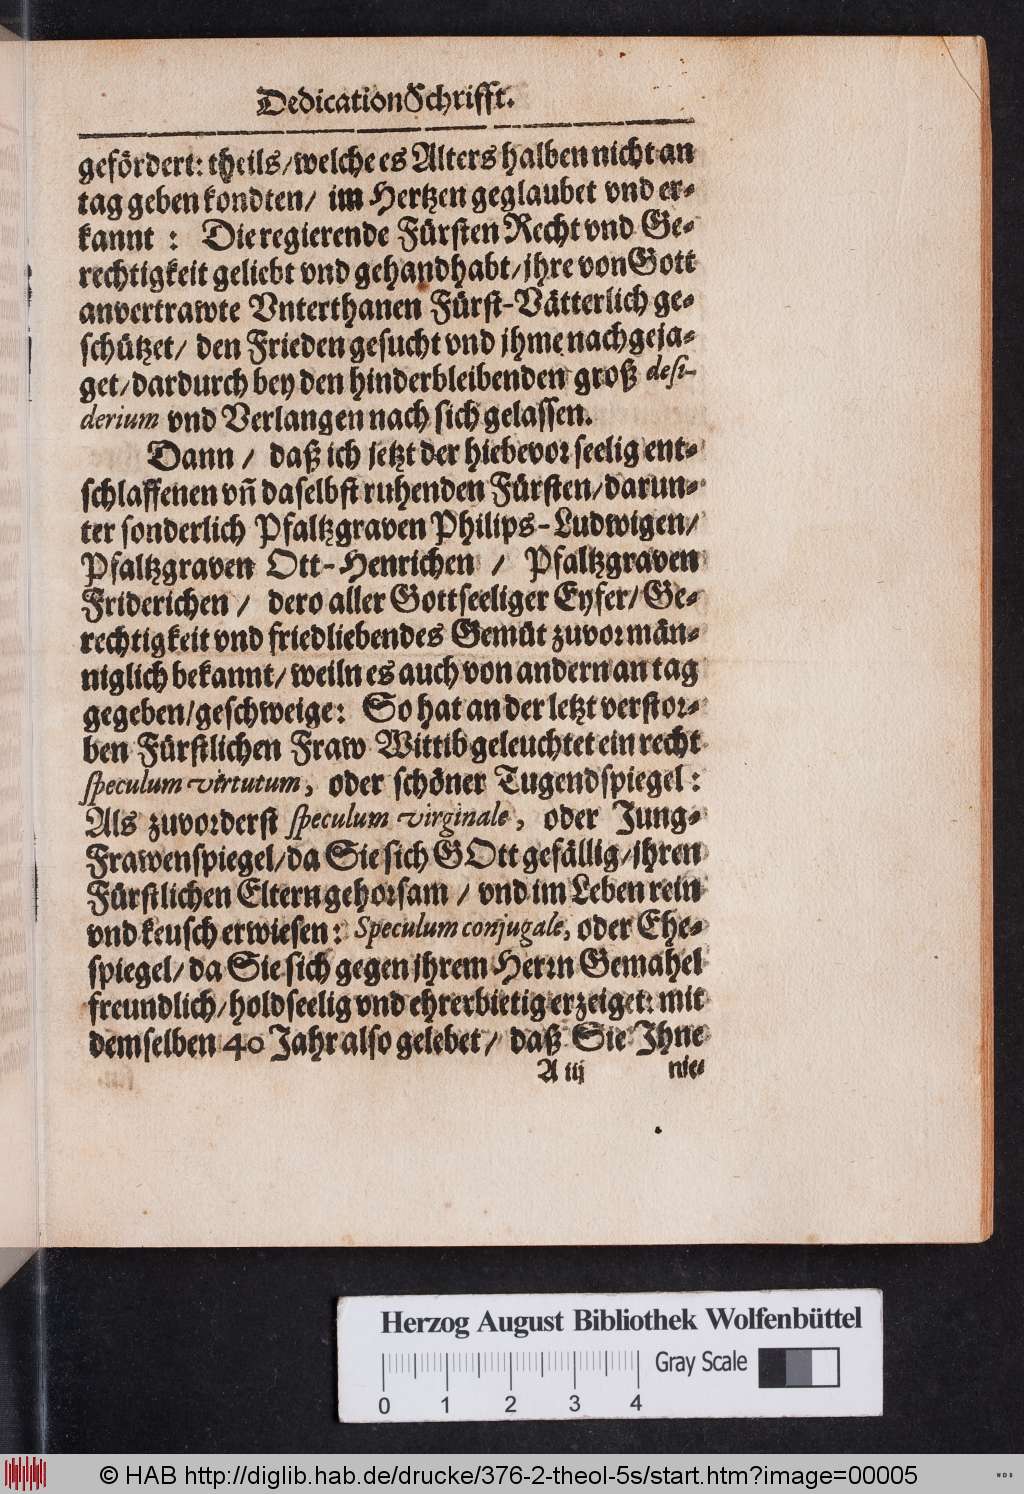 Dedication Schrifft.
gefördert: theils/ welche es Alters halben nicht an
tag geben kondten/ im Hertzen geglaubet vnd er-
kannt : Die regierende Fürsten Recht vnd Ge-
rechtigkeit geliebt vnd gehandhabt/ jhre von Gott
anvertrawte Vnterthanen Fürst-Vätterlich ge-
schützet/ den Frieden gesucht vnd jhme nachgeja-
get/ dardurch bey den hinderbleibenden groß desi-
derium vnd Verlangen nach sich gelassen.
Dann / daß ich jetzt der hiebevor seelig ent-
schlaffenen vn̄ daselbst ruhenden Fürsten/ darun-
ter sonderlich Pfaltzgraven Philips-Ludwigen/
Pfaltzgraven Ott-Henrichen / Pfaltzgraven
Friderichen / dero aller Gottseeliger Eyfer/ Ge-
rechtigkeit vnd friedliebendes Gemüt zuvor män-
niglich bekannt/ weiln es auch von andern an tag
gegeben/ geschweige: So hat an der letzt verstor-
ben Fürstlichen Fraw Wittib geleuchtet ein recht
speculum virtutum, oder schöner Tugendspiegel:
Als zuvorderst speculum virginale, oder Jung-
Frawenspiegel/ da Sie sich GOtt gefällig/ jhren
Fürstlichen Eltern gehorsam / vnd im Leben rein
vnd keusch erwiesen: Speculum conjugale, oder Ehe-
spiegel/ da Sie sich gegen jhrem Herrn Gemahel
freundlich/ holdseelig vnd ehrerbietig erzeiget: mit
demselben 40 Jahr also gelebet/ daß Sie Ihne
A iij nie-
Herzog August Bibliothek Wolfenbüttel
Gray Scale
0 1 2 3 4
© HAB http://diglib.hab.de/drucke/376-2-theol-5s/start.htm?image=00005